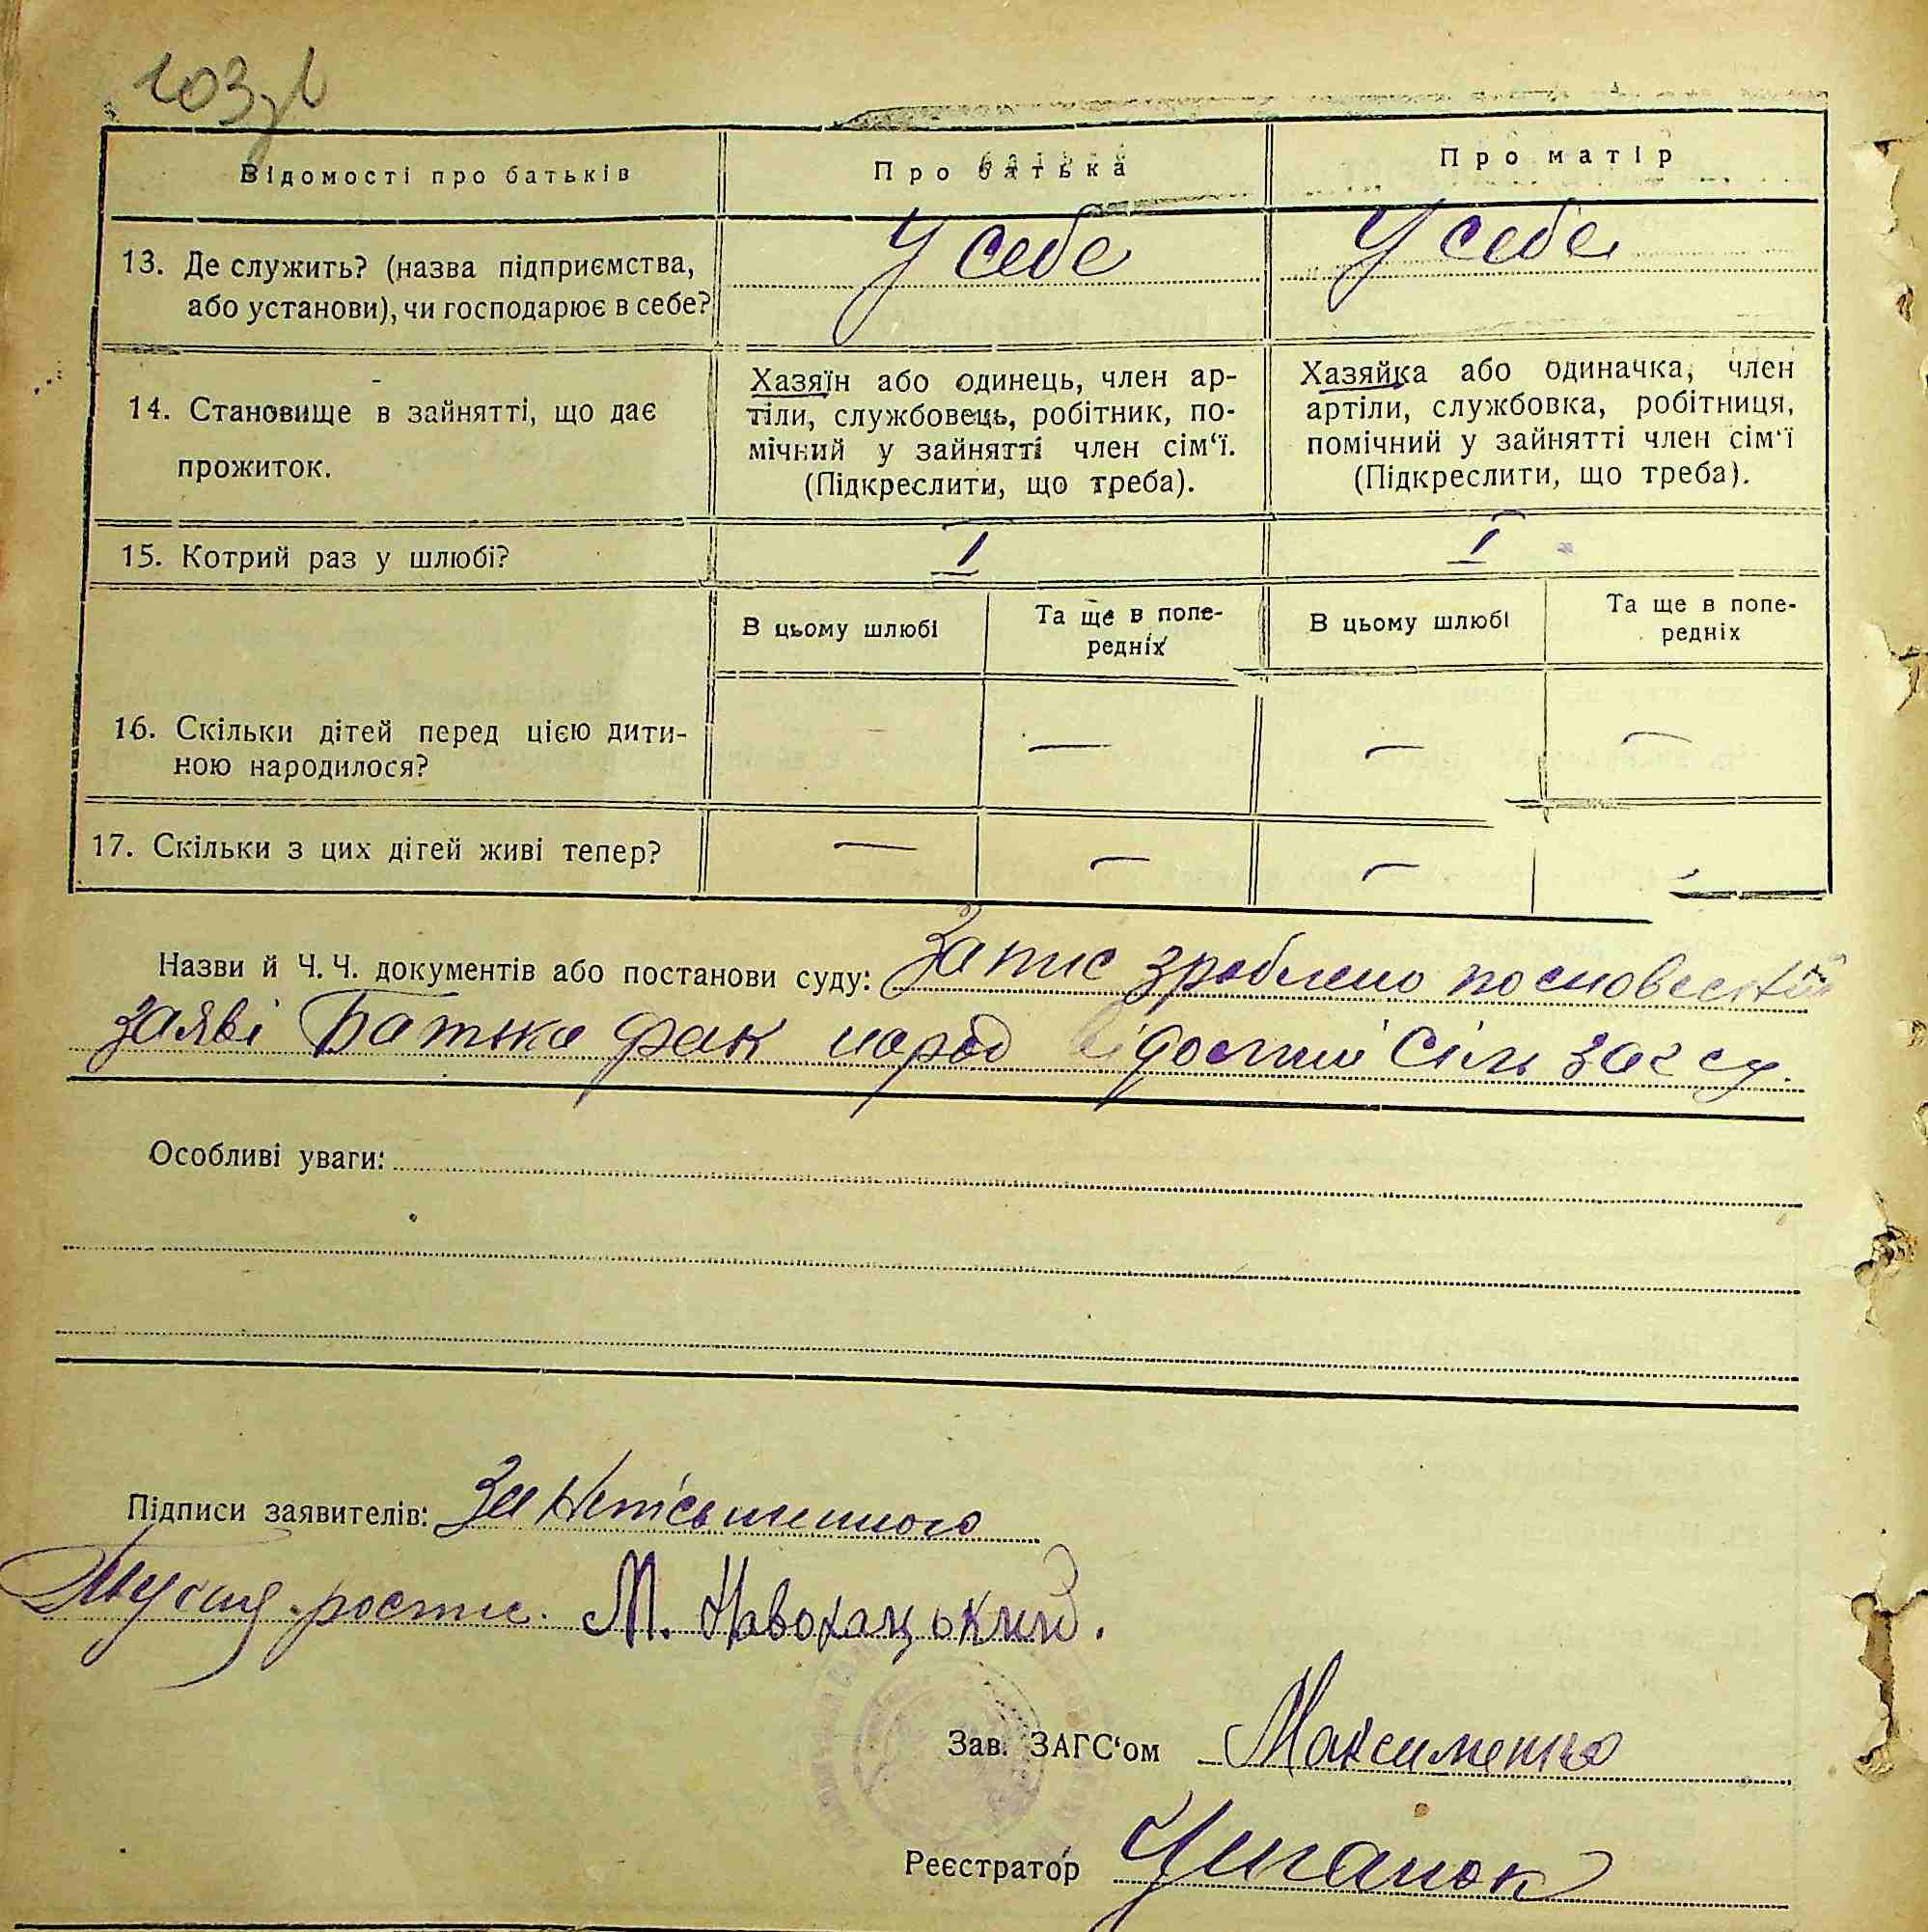 103зв
Відомості про батьків
Про батька
Про матір
13. Де служить? (назва підприємства,
або установи), чи господарює в себе?
У себе
У себе
14. Становище в зайнятті, що дає
прожиток.
Хазяїн або одинець, член ар-
тіли, службовець, робітник, по-
мічний у зайнятті член сім‘ї.
(Підкреслити, що треба).
Хазяйка або одиначка, член
артіли, службовка, робітниця,
помічний у зайнятті член сім‘ї
(Підкреслити, що треба).
15. Котрий раз у шлюбі?
I
I
В цьому шлюбі
Та ще в попе-
редніх
В цьому шлюбі
Та ще в попе-
редніх
16. Скільки дітей перед цією дити-
ною народилося?
— — —
17. Скільки з цих дітей живі тепер?
— — — —
Назви й Ч. Ч. документів або постанови суду: Запис зроблено по словесній
заяві Батька фак народ відомий Сіль загсу.
Особливі уваги:
Підписи заявителів: За Неписьменного
роспис. М. Навохацький.
Зав. ЗАГС‘ом Максименко
Реєстратор